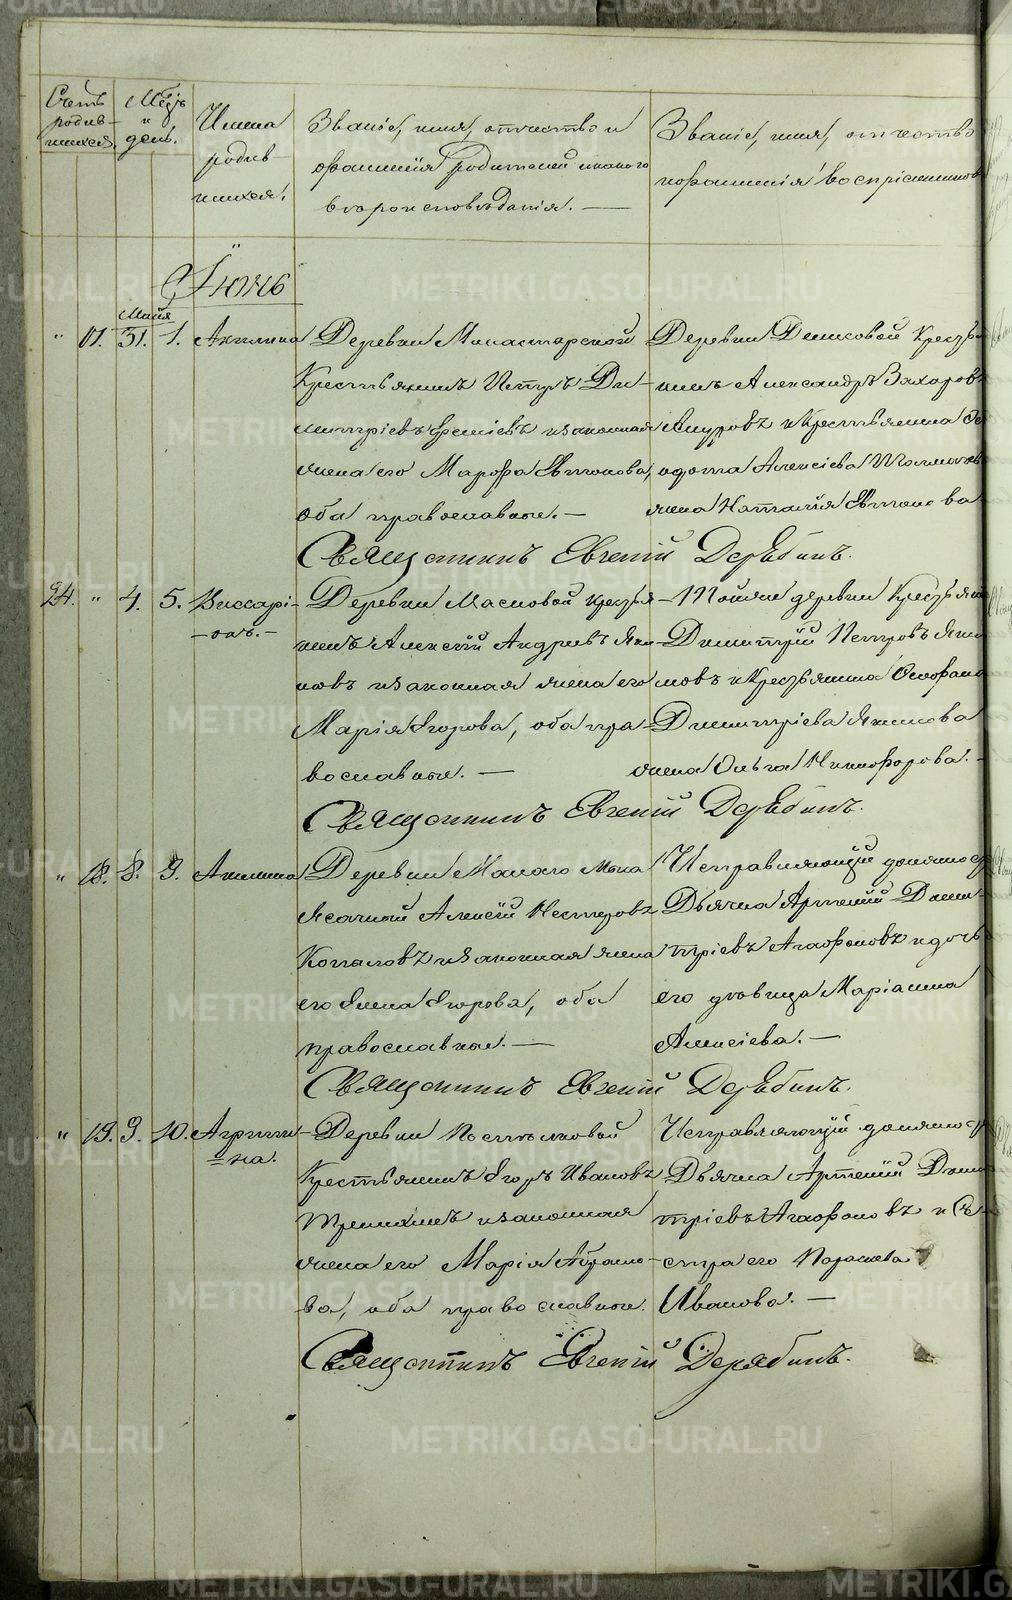 Счетъ родив-шихся.
Мѣся. и день.
Имена родив-шихся.
Званіе, имя, отчество и
фамилія родителей и какого
вѣроисповѣданія. —
Званіе, имя, отчество
и фамилія воспріемниковъ
Іюнь
Мaія
" 17. 31. 1. Акилина
Деревни Монастырской
Крестьянинъ Петръ Ди-
митріевъ и законная
жена его Марфа Антонова,
оба православные. —
Деревни Денисовой Кресть-
нинъ Александръ Захаровъ
и Крестьянина
Алексіева
жена Наталія
Священникъ Евгеній Дерябинъ.
24. " 4. 5. Виссарі-
-онъ. —
Деревни Масловой Крестья-
нинъ Алексій Андреевъ Яки-
мовъ и законная жена его
Марія Егорова, оба пра-
вославные. —
Тойже деревни Крестьяни
Димитрій Петровъ Яки-
мовъ и Крестьянина Феофана
Димитріева Якимова
жена Ольга Никифорова. —
Священникъ Евгеній Дерябинъ.
" 18. 8. 9. Акилина
Деревни Малаго
Ясачный Алексій Нестеровъ
Копыловъ и законная жена
его Елена Егорова, оба
православные. —
Исправляющій должнос
Дьячка Артемій Дими-
тріевъ Агафоновъ и дочь
его дѣвица Маріанна
Алексіева. —
Священникъ Евгеній Дерябинъ.
" 19. 9. 10. Агрипи-
=на.
Деревни
Крестьянинъ Егоръ Ивановъ
и законная
жена его Марія Абрамо-
ва, оба православные.
Исправляющій должнос
Дьячка Артемій Дими
тріевъ Агафоновъ и Се-
стра его Параскева
Иванова. —
Священникъ Евгеній Дерябинъ.
METRIKI.GASO-URAL.RU